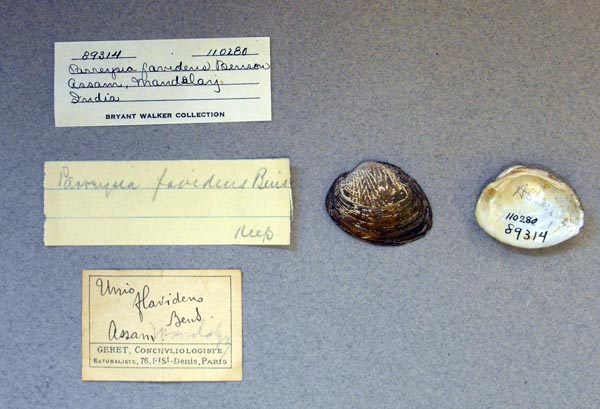 89314 110280
Parreysia favidens Benson
Assam, Mandalay
India
BRYANT WALKER COLLECTION
Parreysia favidens Bens
Unio
flavidens
Bens.
Assam
GERET, CONCHYLIOLOGISTE
NATURALISTE, 76, Fg St-Denis, PARIS
110280
89314